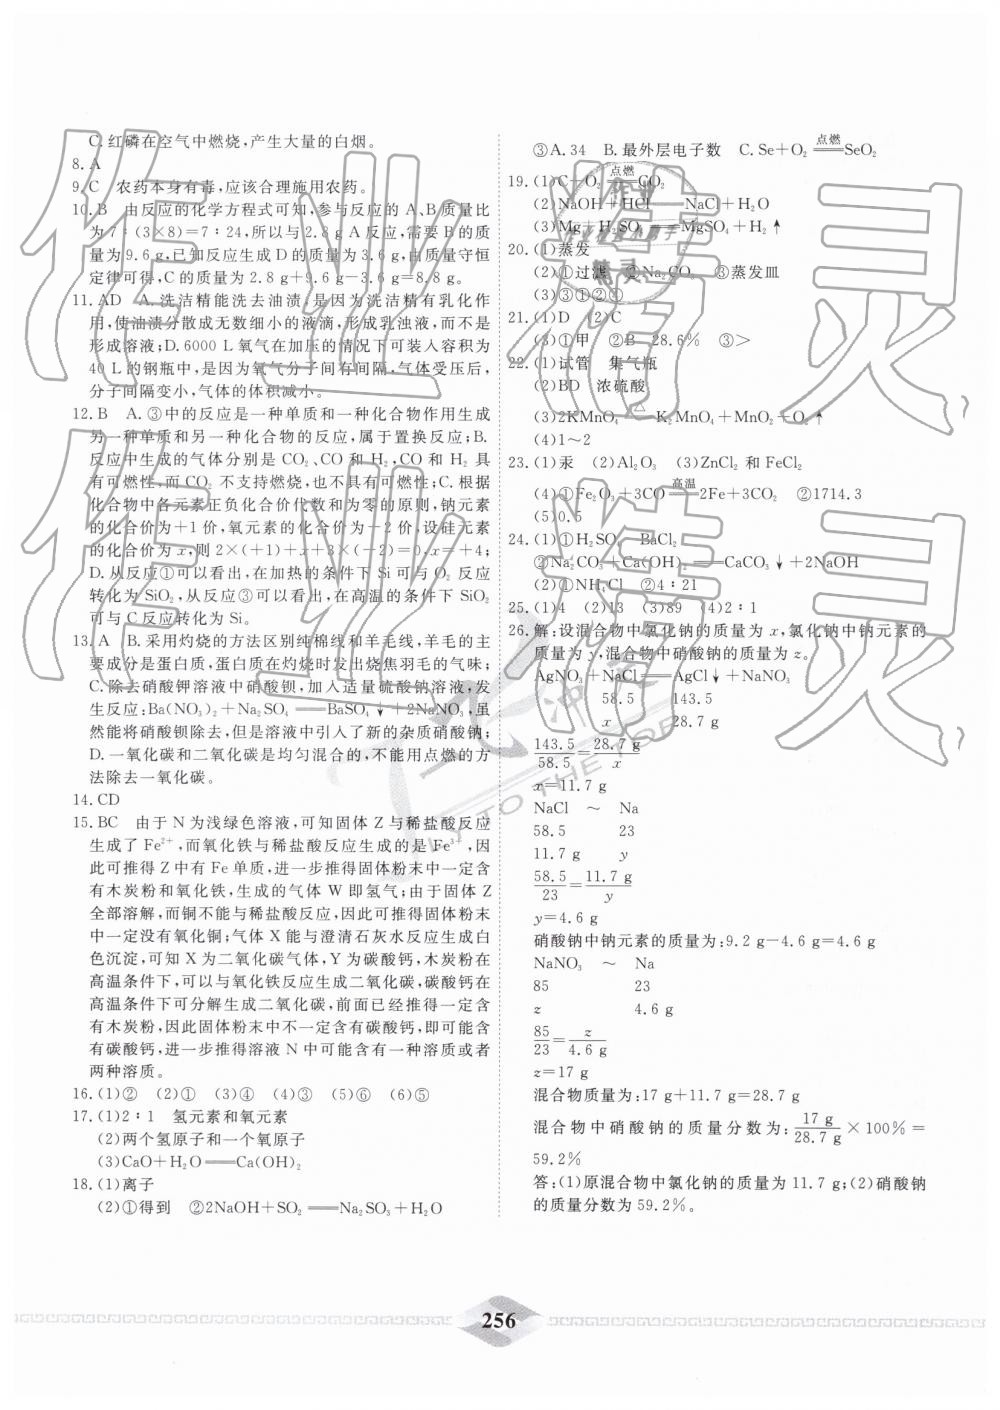 C. 红磷在空气中燃烧，产生大量的白烟。
8. A
9. C 农药本身有毒，应该合理施用农药。
10. B 由反应的化学方程式可知，参与反应的 A、B 质量比
为 7∶(3×8)=7∶24，所以与 2.8 g A 反应，需要 B 的质
量为 9.6 g，已知反应生成 D 的质量为 3.6 g，由质量守恒
定律可得，C 的质量为 2.8 g+9.6 g-3.6 g=8.8 g。
11. AD A. 洗洁精能洗去油渍，是因为洗洁精有乳化作
用，使油渍分散成无数细小的液滴，形成乳浊液，而不是
形成溶液；D. 6000 L 氧气在加压的情况下可装入容积为
40 L 的钢瓶中，是因为氧气分子间有间隔，气体受压后，
分子间隔变小，气体的体积减小。
12. B A. ③中的反应是一种单质和一种化合物作用生成
另一种单质和另一种化合物的反应，属于置换反应；B.
反应中生成的气体分别是 CO₂、CO 和 H₂，CO 和 H₂ 具
有可燃性，而 CO₂ 不支持燃烧，也不具有可燃性；C. 根据
化合物中各元素正负化合价代数和为零的原则，钠元素
的化合价为+1 价，氧元素的化合价为-2 价，设硅元素
的化合价为 x，则 2×(+1)+x+3×(-2)=0，x=+4；
D. 从反应①可以看出，在加热的条件下 Si 可与 O₂ 反应
转化为 SiO₂，从反应③可以看出，在高温的条件下 SiO₂
可与 C 反应转化为 Si。
13. A B. 采用灼烧的方法区别纯棉线和羊毛线，羊毛的主
要成分是蛋白质，蛋白质在灼烧时发出烧焦羽毛的气味；
C. 除去硝酸钾溶液中硝酸钡，加入适量硫酸钠溶液，发
生反应：Ba(NO₃)₂+Na₂SO₄══BaSO₄↓+2NaNO₃，虽
然能将硝酸钡除去，但是溶液中引入了新的杂质硝酸钠；
D. 一氧化碳和二氧化碳是均匀混合的，不能用点燃的方
法除去一氧化碳。
14. CD
15. BC 由于 N 为浅绿色溶液，可知固体 Z 与稀盐酸反应
生成了 Fe²⁺，而氧化铁与稀盐酸反应生成的是 Fe³⁺，因
此可推得 Z 中有 Fe 单质，进一步推得固体粉末中一定含
有木炭粉和氧化铁，生成的气体 W 即氢气；由于固体 Z
全部溶解，而铜不能与稀盐酸反应，因此可推得固体粉末
中一定没有氧化铜；气体 X 能与澄清石灰水反应生成白
色沉淀，可知 X 为二氧化碳气体，Y 为碳酸钙，木炭粉在
高温条件下，可以与氧化铁反应生成二氧化碳，碳酸钙在
高温条件下可分解生成二氧化碳，前面已经推得一定含
有木炭粉，因此固体粉末中不一定含有碳酸钙，即可能含
有碳酸钙，进一步推得溶液 N 中可能含有一种溶质或者
两种溶质。
16. (1)② (2)① (3)④ (4)③ (5)⑥ (6)⑤
17. (1)2∶1 氢元素和氧元素
(2)两个氢原子和一个氧原子
(3)CaO+H₂O══Ca(OH)₂
18. (1)离子
(2)①得到 ②2NaOH+SO₂══Na₂SO₃+H₂O
③A. 34 B. 最外层电子数 C. Se+O₂ 点燃══ SeO₂
19. (1)C+O₂ 点燃══ CO₂
(2)NaOH+HCl══NaCl+H₂O
(3)Mg+H₂SO₄══MgSO₄+H₂↑
20. (1)蒸发
(2)①过滤 ②Na₂CO₃ ③蒸发皿
(3)③①②④
21. (1)D (2)C
(3)①甲 ②B 28.6% ③>
22. (1)试管 集气瓶
(2)BD 浓硫酸
(3)2KMnO₄ △══ K₂MnO₄+MnO₂+O₂↑
(4)1~2
23. (1)汞 (2)Al₂O₃ (3)ZnCl₂ 和 FeCl₂
(4)①Fe₂O₃+3CO 高温══ 2Fe+3CO₂ ②1714.3
(5)0.5
24. (1)①H₂SO₄ BaCl₂
②Na₂CO₃+Ca(OH)₂══CaCO₃↓+2NaOH
(2)①NH₄Cl ②4∶21
25. (1)4 (2)13 (3)89 (4)2∶1
26. 解：设混合物中氯化钠的质量为 x，氯化钠中钠元素的
质量为 y，混合物中硝酸钠的质量为 z。
AgNO₃+NaCl══AgCl↓+NaNO₃
58.5 143.5
x 28.7 g
143.5/58.5=28.7 g/x
x=11.7 g
NaCl ~ Na
58.5 23
11.7 g y
58.5/23=11.7 g/y
y=4.6 g
硝酸钠中钠元素的质量为：9.2 g-4.6 g=4.6 g
NaNO₃ ~ Na
85 23
z 4.6 g
85/23=z/4.6 g
z=17 g
混合物质量为：17 g+11.7 g=28.7 g
混合物中硝酸钠的质量分数为：17 g/28.7 g×100%=
59.2%
答：(1)原混合物中氯化钠的质量为 11.7 g；(2)硝酸钠
的质量分数为 59.2%。
256
作业精灵
作业精灵